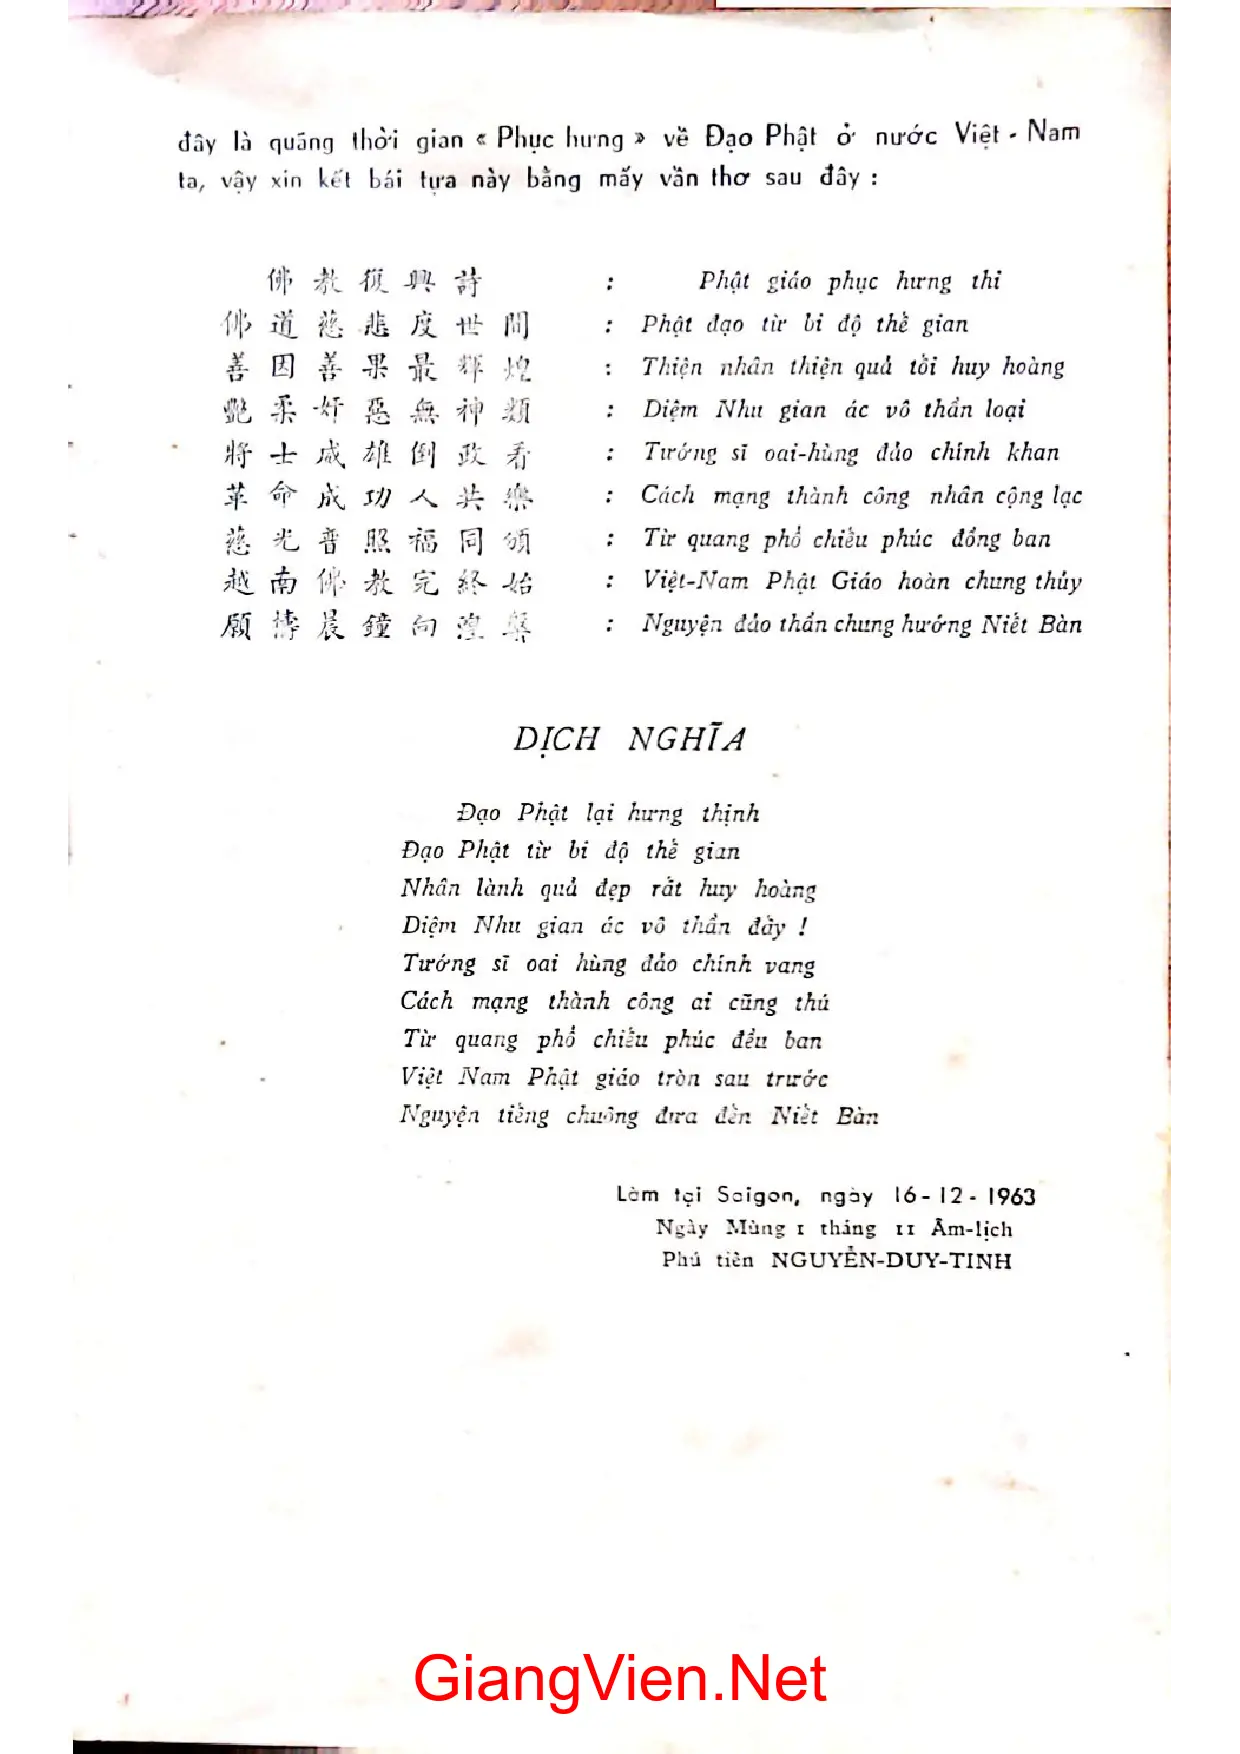 đây là quãng thời gian « Phục hưng » về Đạo Phật ở nước Việt - Nam
ta, vậy xin kết bái tựa này bằng mấy vần thơ sau đây :
佛 教 復 興 詩 : Phật giáo phục hưng thi
佛 道 慈 悲 度 世 間 : Phật đạo từ bi độ thế gian
善 因 善 果 最 輝 煌 : Thiện nhân thiện quả tối huy hoàng
艷 柔 奸 惡 無 神 類 : Diệm Nhu gian ác vô thần loại
將 士 威 雄 倒 政 看 : Tướng sĩ oai-hùng đảo chính khan
革 命 成 功 人 共 樂 : Cách mạng thành công nhân cộng lạc
慈 光 普 照 福 同 頒 : Từ quang phổ chiếu phúc đồng ban
越 南 佛 教 完 終 始 : Việt-Nam Phật Giáo hoàn chung thủy
願 禱 晨 鐘 向 涅 槃 : Nguyện đảo thần chung hướng Niết Bàn
DỊCH NGHĨA
Đạo Phật lại hưng thịnh
Đạo Phật từ bi độ thế gian
Nhân lành quả đẹp rất huy hoàng
Diệm Nhu gian ác vô thần đầy !
Tướng sĩ oai hùng đảo chính vang
Cách mạng thành công ai cũng thú
Từ quang phổ chiếu phúc đều ban
Việt Nam Phật giáo tròn sau trước
Nguyện tiếng chuông đưa đến Niết Bàn
Làm tại Saigon, ngày 16 - 12 - 1963
Ngày Mùng 1 tháng 11 Âm-lịch
Phú tiên NGUYỄN-DUY-TINH
GiangVien.Net